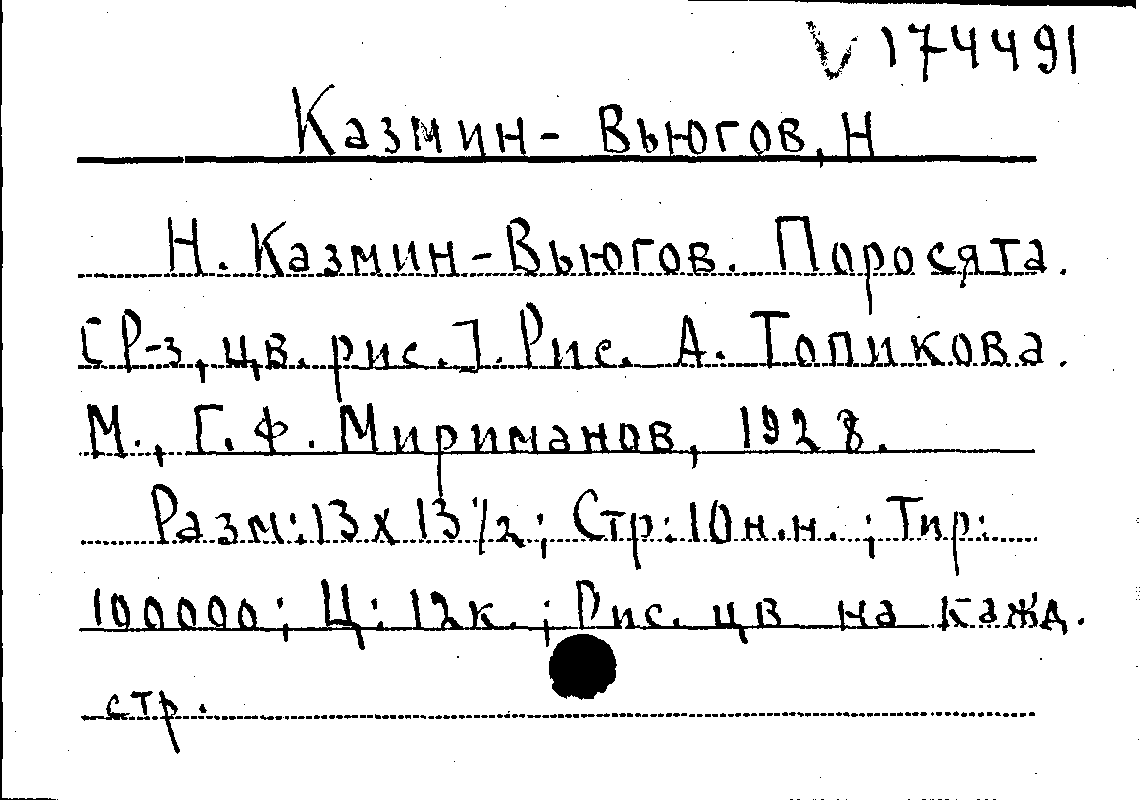 V 174491
Казмин-Вьюгов, Н
Н. Казмин-Вьюгов. Поросята.
[Р-з, цв. рис.]. Рис. А. Топикова.
М., Г. Ф. Мириманов, 1928.
Разм: 13 х 13 1/2; Стр: 10 н.н.; Тир:
100000; Ц: 12к.; Рис. цв на кажд.
стр.